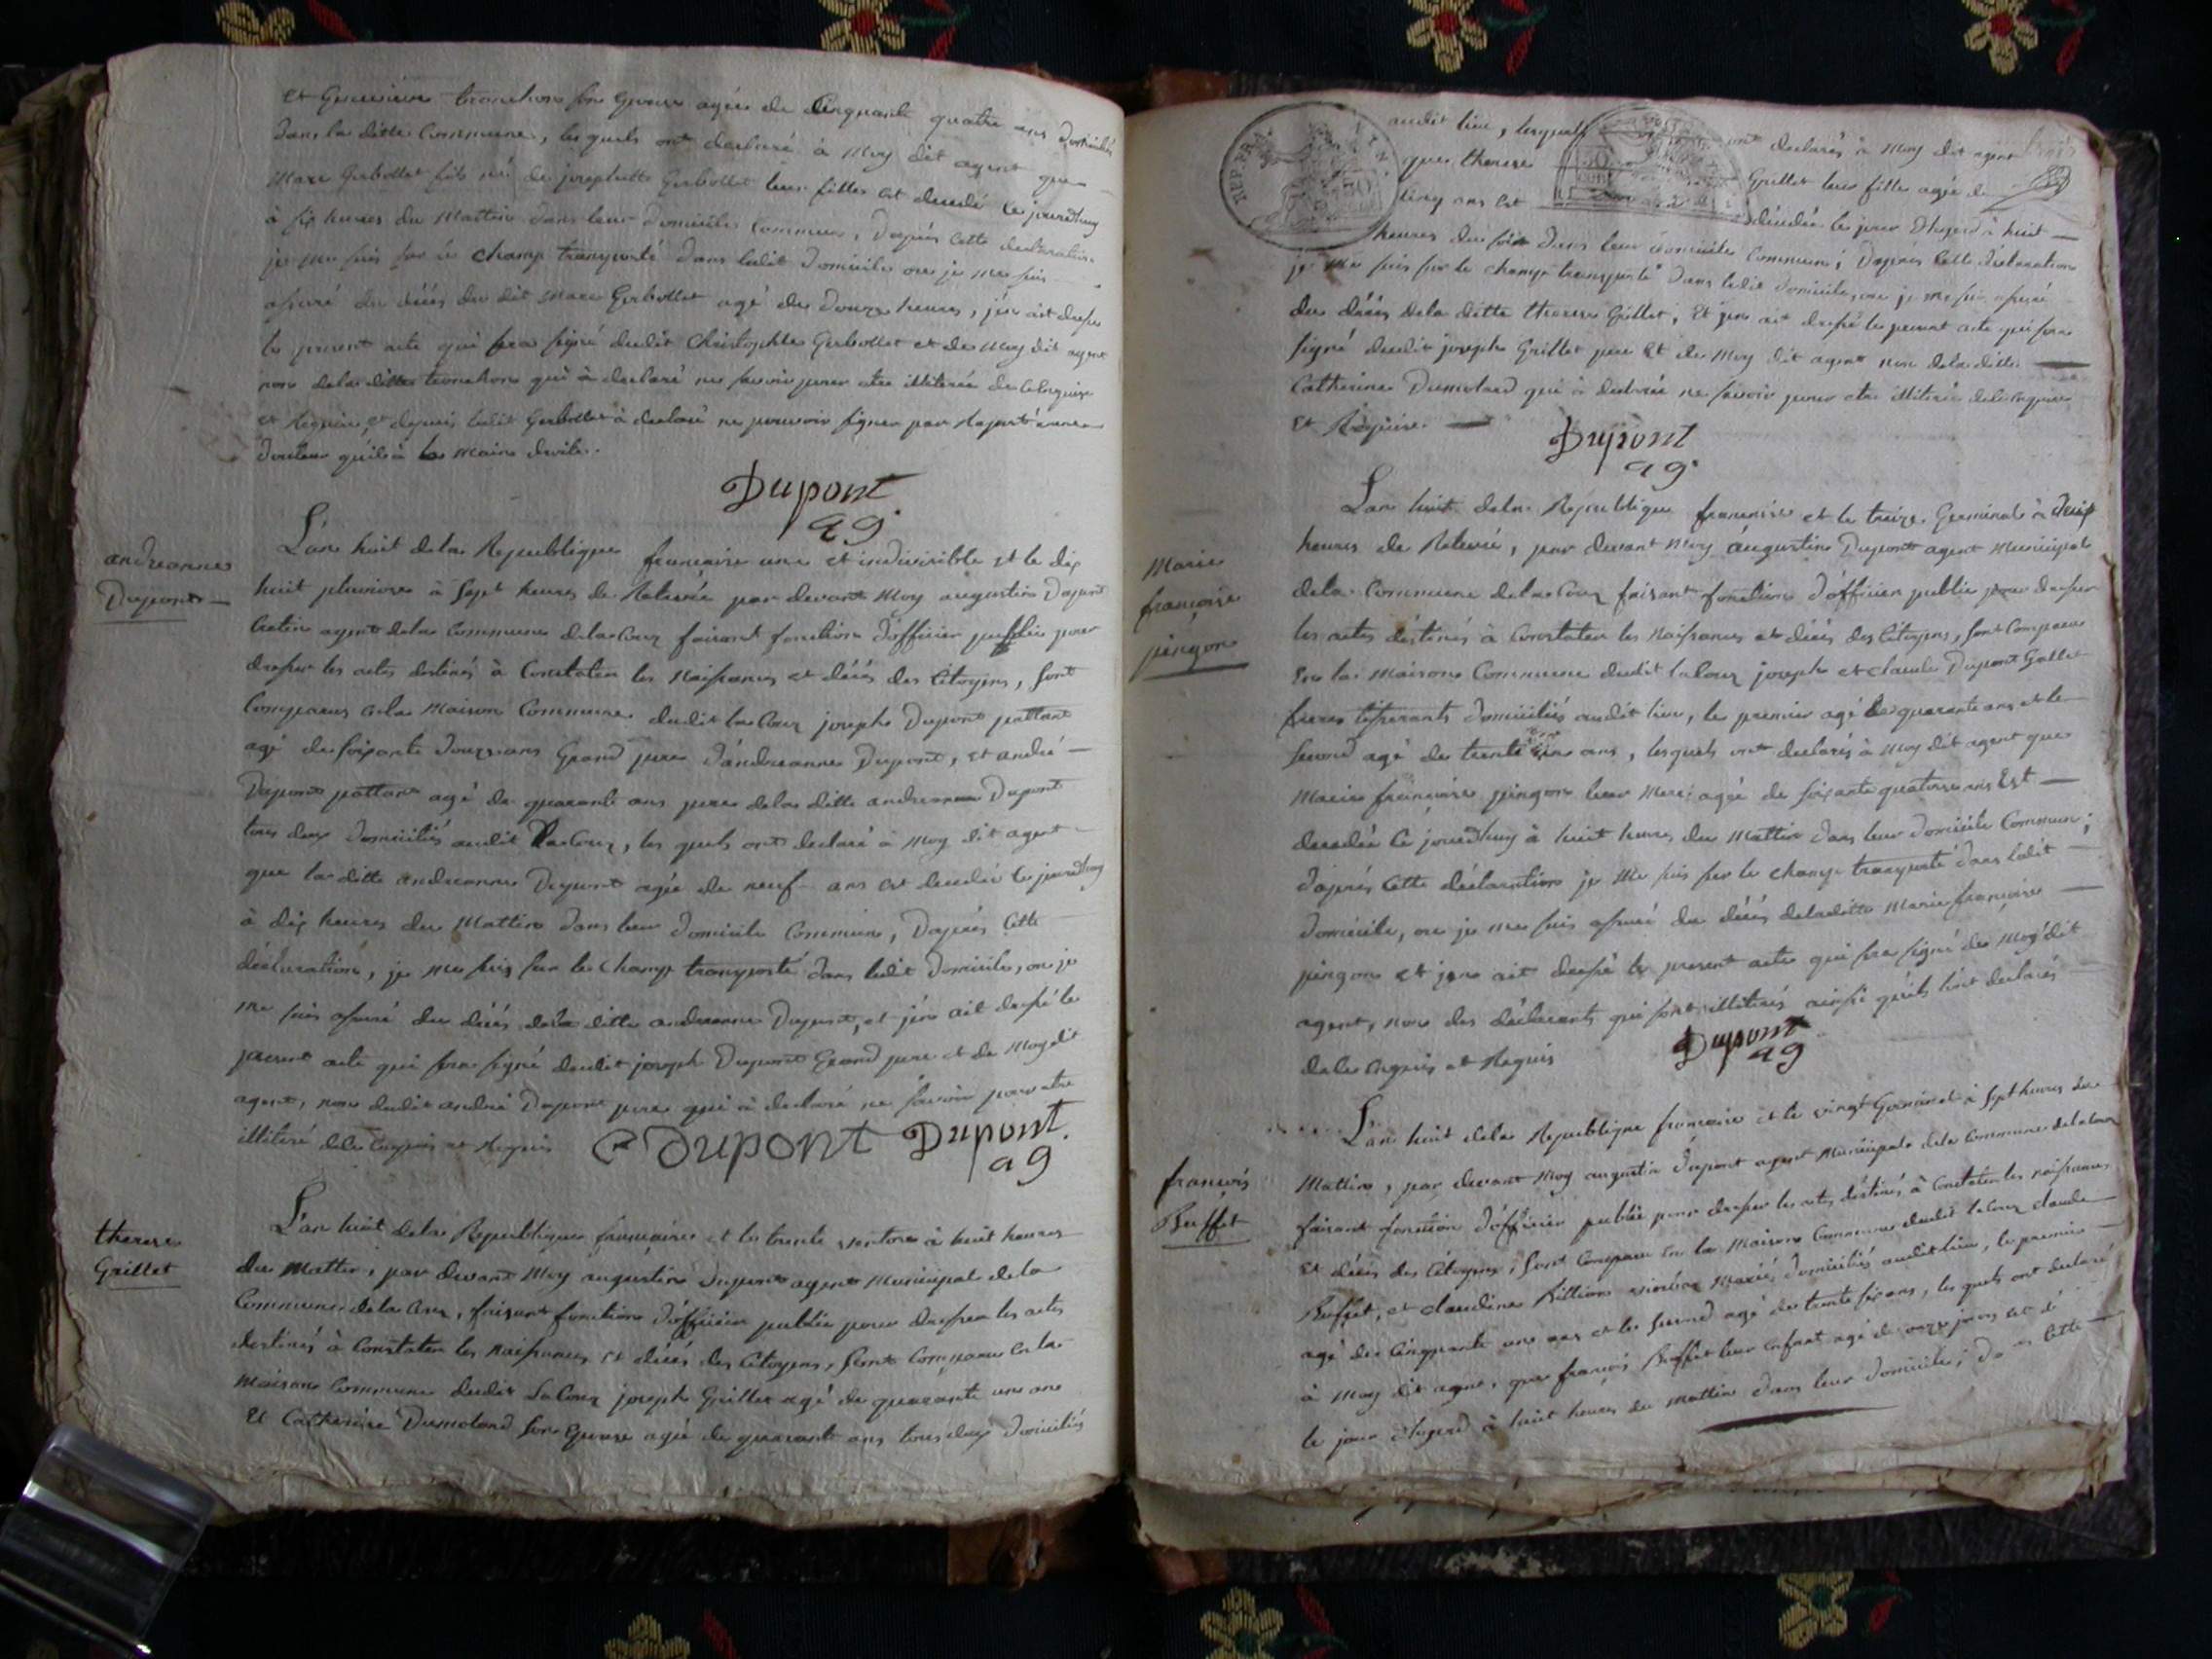 et Genevieve tronchon son Epouse agée de Cinquante quatre ans domiciliés
dans la ditte Commune, les quels ont declaré à Moy dit agent que
Marc Gerbollet fils né de josephette Gerbollet leur fille est decedé ce jourdhuy
à six heures du Mattin dans leur domicile Commun, d'aprés cette declaration
je me suis sur le champ transporté dans ledit domicile ou je me suis
assuré du décés du dit Marc Gerbollet agé de douze heures, j'en ait dressé
le present acte qui sera signé dudit Christophle Gerbollet et de Moy dit agent
non de la ditte tronchon qui à declaré ne savoir pour etre illiterée de ce Enquise
et Requise, et depuis ledit Gerbollet à declaré ne pouvoir signer par Raport à une
douleur qu'il à la Main droite.
Dupont
ag.
andreanne
Dupont
L'an huit de la Republique francaise une et indivisible et le dix
huit pluviose à Sept heures de Relevée par devant Moy augustin Dupont
Cretin agent de la Commune de la Cour faisant fonction d'officier public pour
dresser les actes destinés à Constater les Naissances et décés des Citoyens, sont
Comparus en la Maison Commune dudit la Cour joseph Dupont pattant
agé de soixante douze ans Grand pere d'andreanne Dupont, et andré
Dupont pattant agé de quarante ans pere de la ditte andreanne Dupont
tous deux domiciliés audit la Cour, les quels ont declaré à Moy dit agent
que la ditte andreanne Dupont agée de neuf ans est decedée ce jourdhuy
à dix heures du Mattin dans leur domicile Commun, D'aprés Cette
déclaration, je me suis sur le champ transporté dans ledit domicile, ou je
me suis assuré du décés de la ditte andreanne Dupont, et j'en ait dressé le
present acte qui sera signé dudit joseph Dupont Grand pere et de Moy dit
agent, non dudit andré Dupont pere qui à declaré ne savoir pour etre
illiteré de ce Enquis et Requis
Dupont Dupont
ag
therese
Grillet
L'an huit de la Republique française et le trente ventose à huit heures
du Mattin, par devant Moy augustin Dupont agent Municipal de la
Commune de la Cour, faisant fonction d'officier public pour dresser les actes
destinés à Constater les Naissances et décés des Citoyens, sont Comparus en la
Maison Commune dudit La Cour joseph Grillet agé de quarante un ans
Et Catherine Dumolard son Epouse agée de quarante ans tous deux domiciliés
REP. FRA.
audit lieu, lesquels ont declarés à Moy dit agent
que therese Grillet leur fille agée de
cinq ans est décédée le jour d'hyerd à huit
heures du soir dans leur domicile Commun; D'aprés Cette déclaration
je me suis sur le champ transporté dans ledit domicile, ou je me suis assuré
du décés de la ditte therese Grillet, Et j'en ait dressé le present acte qui sera
signé dudit joseph Grillet pere Et de Moy dit agent non de la ditte
Catherine Dumolard qui à declarée ne savoir pour etre illiterée de ce Enquise
Et Requise.
Dupont
ag.
Marie
françoise
pingon
L'an huit de la Republique française et le treize Germinal à deux
heures de Relevée, par devant Moy augustin Dupont agent Municipal
de la Commune de la Cour faisant fonction d'officier public pour dresser
les actes déstinés à Constater les Naissances et décés des Citoyens, sont Comparus
En la Maison Commune dudit la Cour joseph et claude Dupont Gallet
freres domiciliés audit lieu, le premier agé de quarante ans et le
second agé de trente ans, lesquels ont declarés à Moy dit agent que
Marie françoise pingon leur Mere agée de soixante quatorze ans Est
decedée ce jourdhuy à huit heures du Mattin dans leur domicile Commun;
d'aprés Cette déclaration je Me suis sur le champ transporté dans ledit
domicile, ou je me suis assuré du décés de la ditte Marie françoise
pingon et j'en ait dressé le present acte qui sera signé de Moy dit
agent, non des déclarants qui sont illiterés ainsi qu'ils l'ont declarés
de ce Enquis et Requis
Dupont
ag
françois
Buffet
L'an huit de la Republique française et le vingt Germinal à Sept heures du
Mattin, par devant Moy augustin Dupont agent Municipal de la Commune de la Cour
faisant fonction d'officier public pour dresser les actes déstinés à Constater les naissances
Et décés des Citoyens, sont Comparu En la Maison Commune dudit la Cour claude
Buffet, et claudine Mariés domiciliés audit lieu, le premier
agé de Cinquante un ans et la second agé de trente six ans, les quels ont declaré
à Moy dit agent, que françois Buffet leur enfant agé de onze jours est dé
le jour d'hyerd à huit heures du Mattin dans leur domicile; Cette